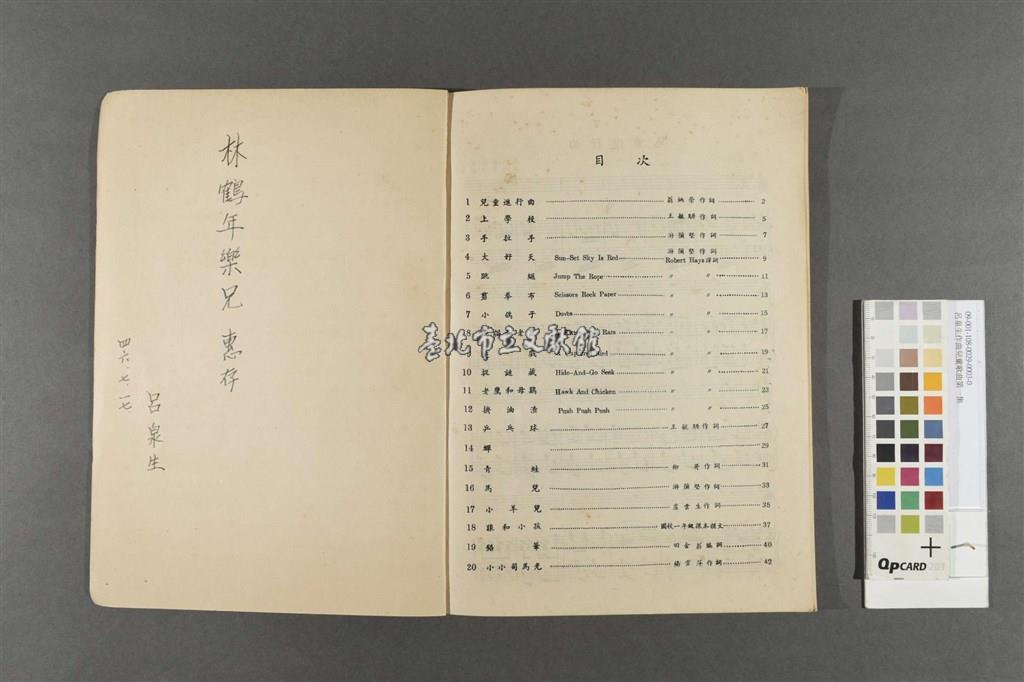 林鶴年樂兄 惠存
呂泉生
四六.七.一七
目 次
1 兒童進行曲 翁炳榮作詞 2
2 上學校 王毓騵作詞 5
3 手拉手 游彌堅作詞 7
4 大好天 Sun-Set Sky Is Red 游彌堅作詞 Robert Hays譯詞 9
5 跳繩 Jump The Rope 〃 〃 11
6 剪拳布 Scissors Rock Paper 〃 〃 13
7 小鴿子 Doves 〃 〃 15
8 Rats 〃 〃 17
〃 〃 19
10 捉謎藏 Hide-And-Go Seek 〃 〃 21
11 老鷹和母鷄 Hawk And Chicken 〃 〃 23
12 擠油渣 Push Push Push 〃 〃 25
13 乒乓球 王毓騵作詞 27
14 蟬 29
15 青蛙 作詞 31
16 馬兒 游彌堅作詞 33
17 小羊兒 盧雲生作詞 35
18 狼和小孩 國校一年級課本韻文 37
19 鉛筆 田舍翁編詞 40
20 小小司馬光 楊雲萍作詞 42
臺北市立文獻館
09-001-108-0029-0003-0
呂泉生作曲兒童歌曲第一集
QPCARD 201